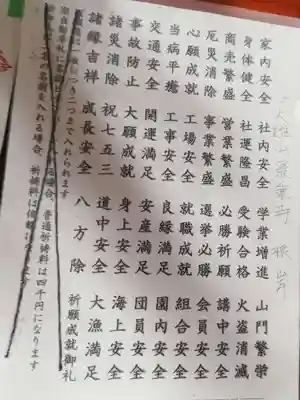 大雄山最乗寺
家内安全 社内安全 学業増進 山門繁栄
身体健全 社運隆昌 受験合格 火盗消滅
商売繁盛 営業繁盛 必勝祈願 講中安全
厄災消除 事業繁盛 選挙必勝 会員安全
心願成就 工場安全 就職成就 組合安全
当病平癒 工事安全 良縁満足 園内安全
交通安全 開運満足 安産満足 団員安全
事故防止 大願成就 身上安全 海上安全
諸災消除 祝七五三 道中安全 大漁満足
諸縁吉祥 成長安全 八方除 祈願成就御礼
につき二つまで入れられます
場合、普通祈祷料は四千円になります
名前を入れる場合、祈祷料は